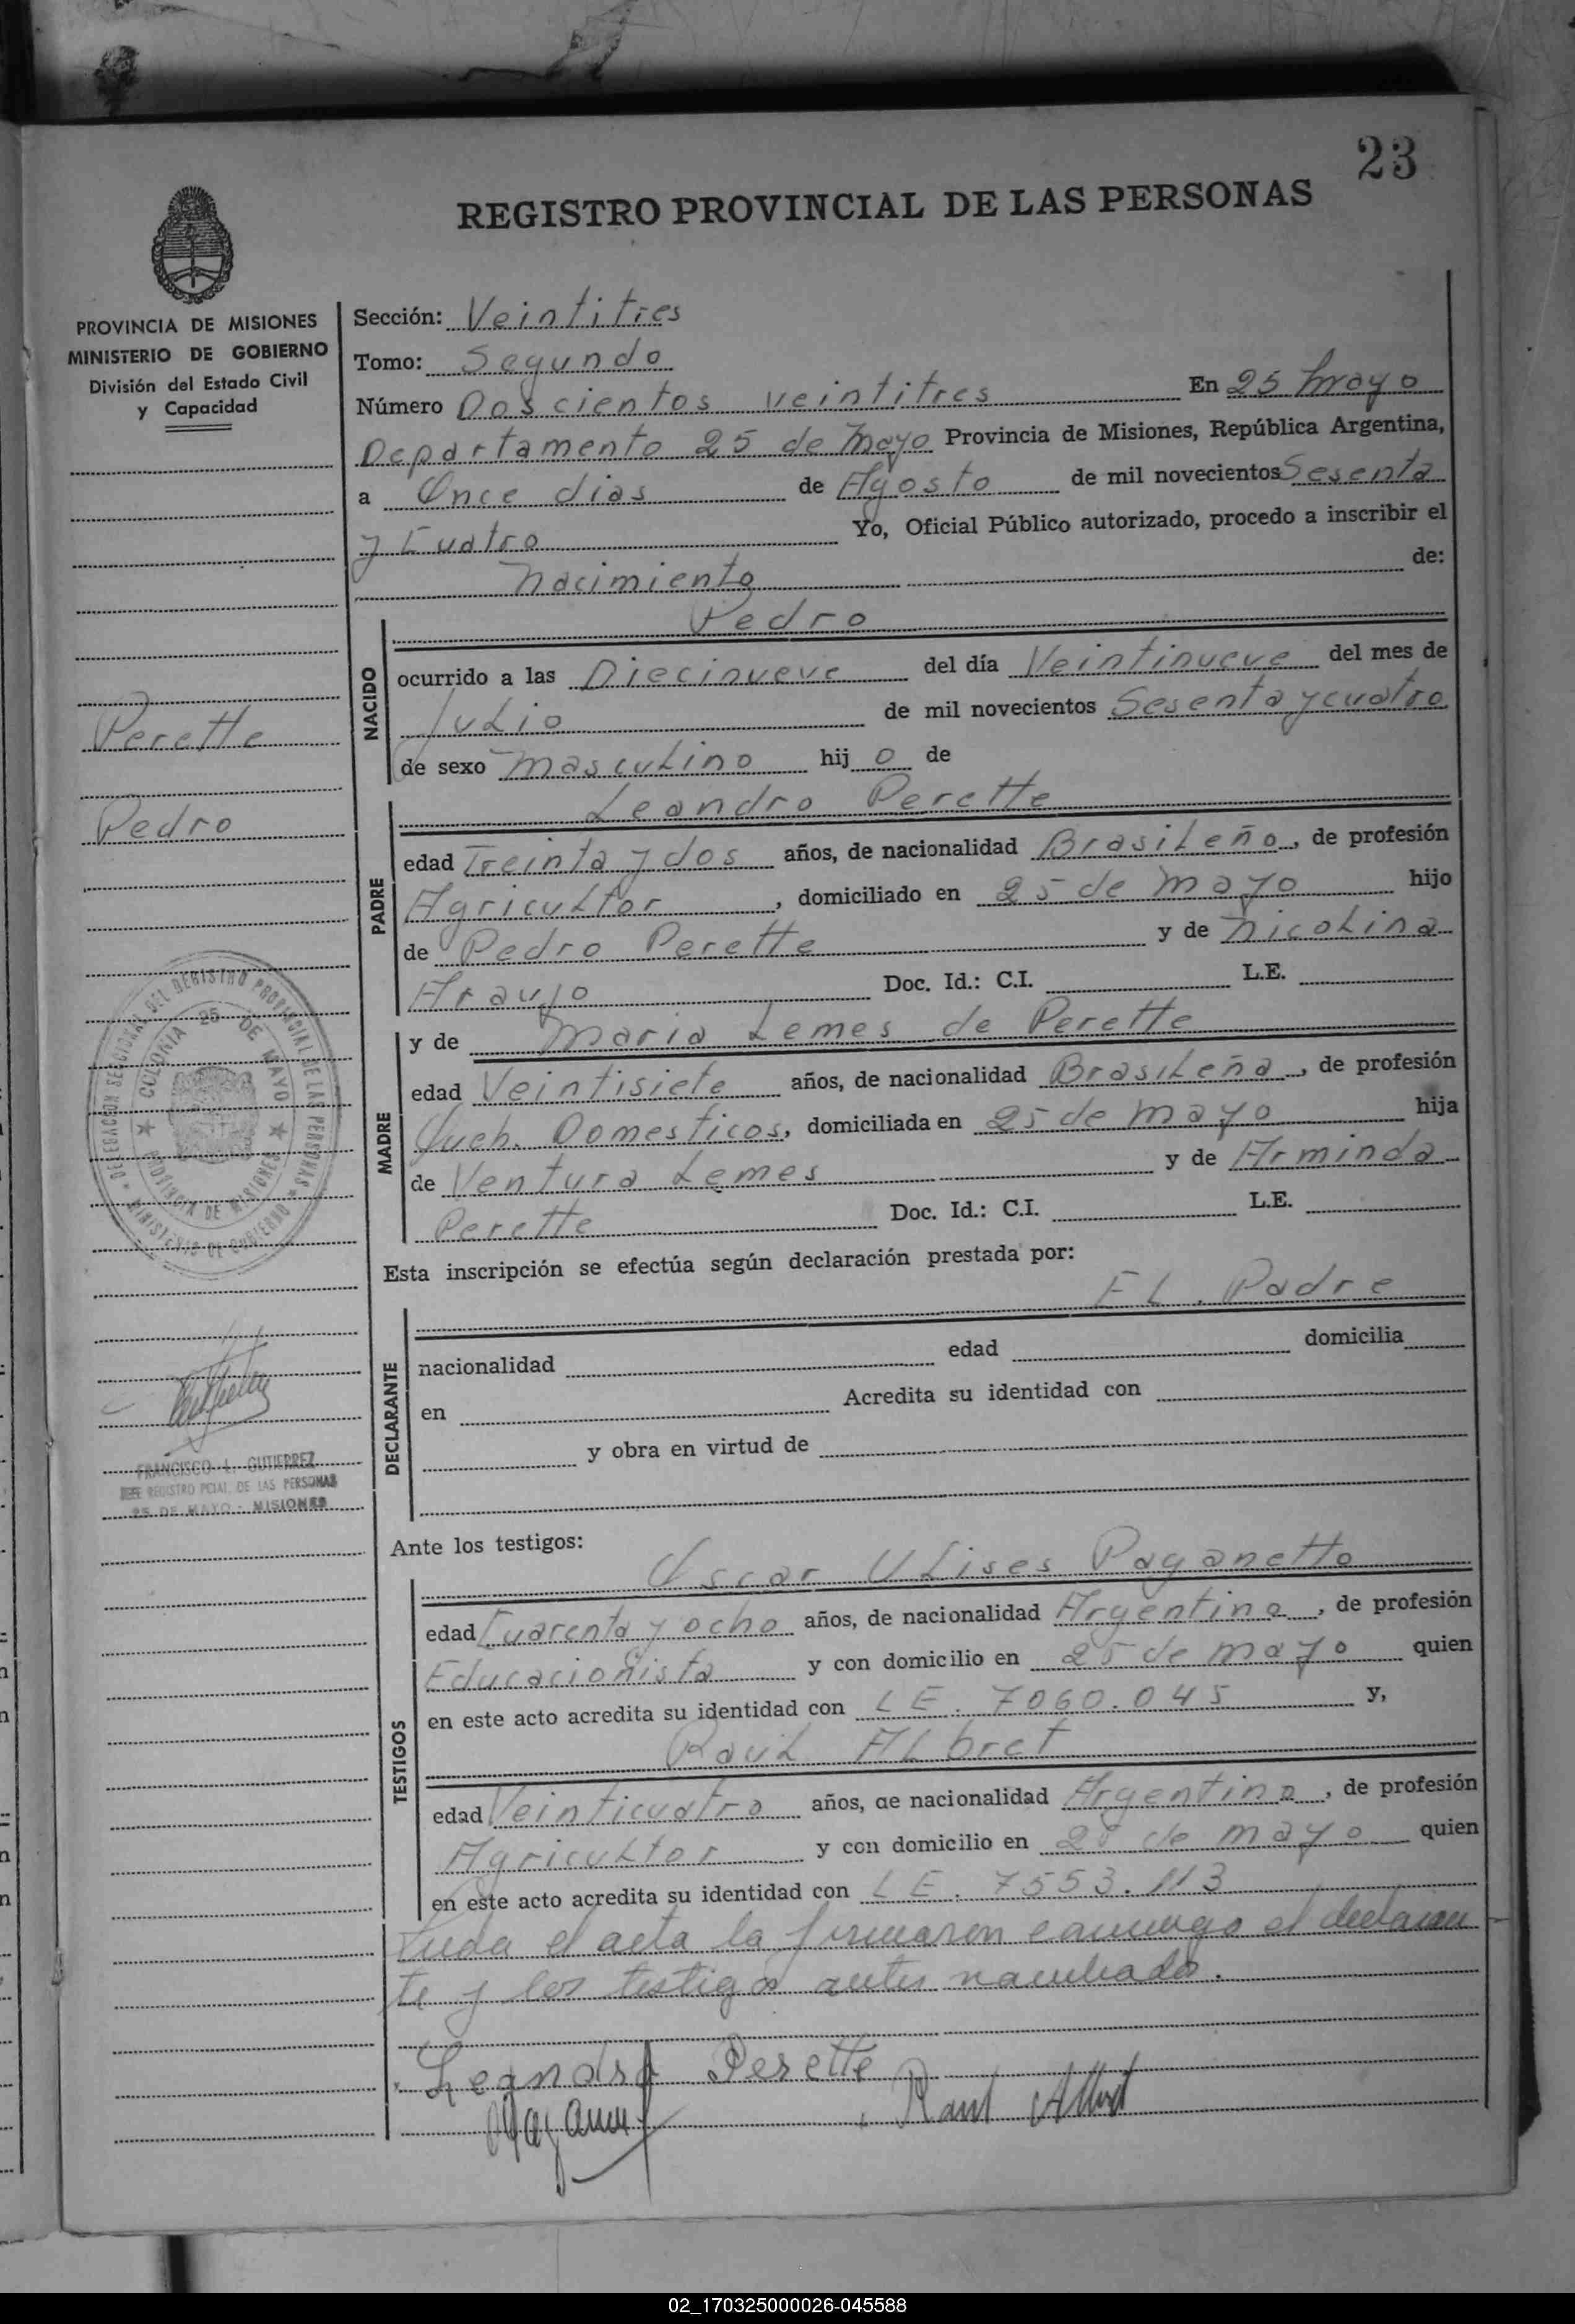 23
REGISTRO PROVINCIAL DE LAS PERSONAS
PROVINCIA DE MISIONES
MINISTERIO DE GOBIERNO
División del Estado Civil
y Capacidad
Perette
Pedro
DELEGACION SECCIONAL DEL REGISTRO PROVINCIAL DE LAS PERSONAS
MINISTERIO DE GOBIERNO
COLONIA 25 DE MAYO
PROVINCIA DE MISIONES
FRANCISCO L. GUTIERREZ
JEFE REGISTRO PCIAL. DE LAS PERSONAS
25 DE MAYO - MISIONES
Sección: Veintitres
Tomo: Segundo
Número Doscientos veintitres En 25 Mayo
Departamento 25 de Mayo Provincia de Misiones, República Argentina,
a Once dias de Agosto de mil novecientos Sesenta
y Cuatro Yo, Oficial Público autorizado, procedo a inscribir el
nacimiento de:
NACIDO
Pedro
ocurrido a las Diecinueve del día Veintinueve del mes de
Julio de mil novecientos Sesenta y cuatro
de sexo masculino hij o de
PADRE
Leandro Perette
edad Treinta y dos años, de nacionalidad Brasileño, de profesión
Agricultor, domiciliado en 25 de mayo hijo
de Pedro Perette y de Nicolina
Araujo Doc. Id.: C.I. L.E.
MADRE
y de Maria Lemes de Perette
edad Veintisiete años, de nacionalidad Brasileña, de profesión
Queh. Domesticos, domiciliada en 25 de mayo hija
de Ventura Lemes y de Arminda
Perette Doc. Id.: C.I. L.E.
Esta inscripción se efectúa según declaración prestada por:
DECLARANTE
EL. Padre
nacionalidad edad domicilia
en Acredita su identidad con
y obra en virtud de
Ante los testigos:
TESTIGOS
Oscar Ulises Paganetto
edad Cuarenta y ocho años, de nacionalidad Argentino, de profesión
Educacionista y con domicilio en 25 de mayo quien
en este acto acredita su identidad con LE. 7060.045 y,
Raul Albret
edad Veinticuatro años, de nacionalidad Argentino, de profesión
Agricultor y con domicilio en 25 de mayo quien
en este acto acredita su identidad con LE. 7553.113
Leida el acta la firmaron conmigo el declaran
te y los testigos antes nombrados.
Leandro Perette
Raul Albret
02_170325000026-045588